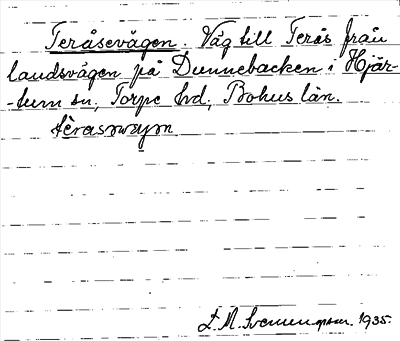 Teråsevägen. Väg till Terås från
landsvägen på Dunnebacken i Hjär-
-tum sn, Torpe hd, Bohus län.
1935.